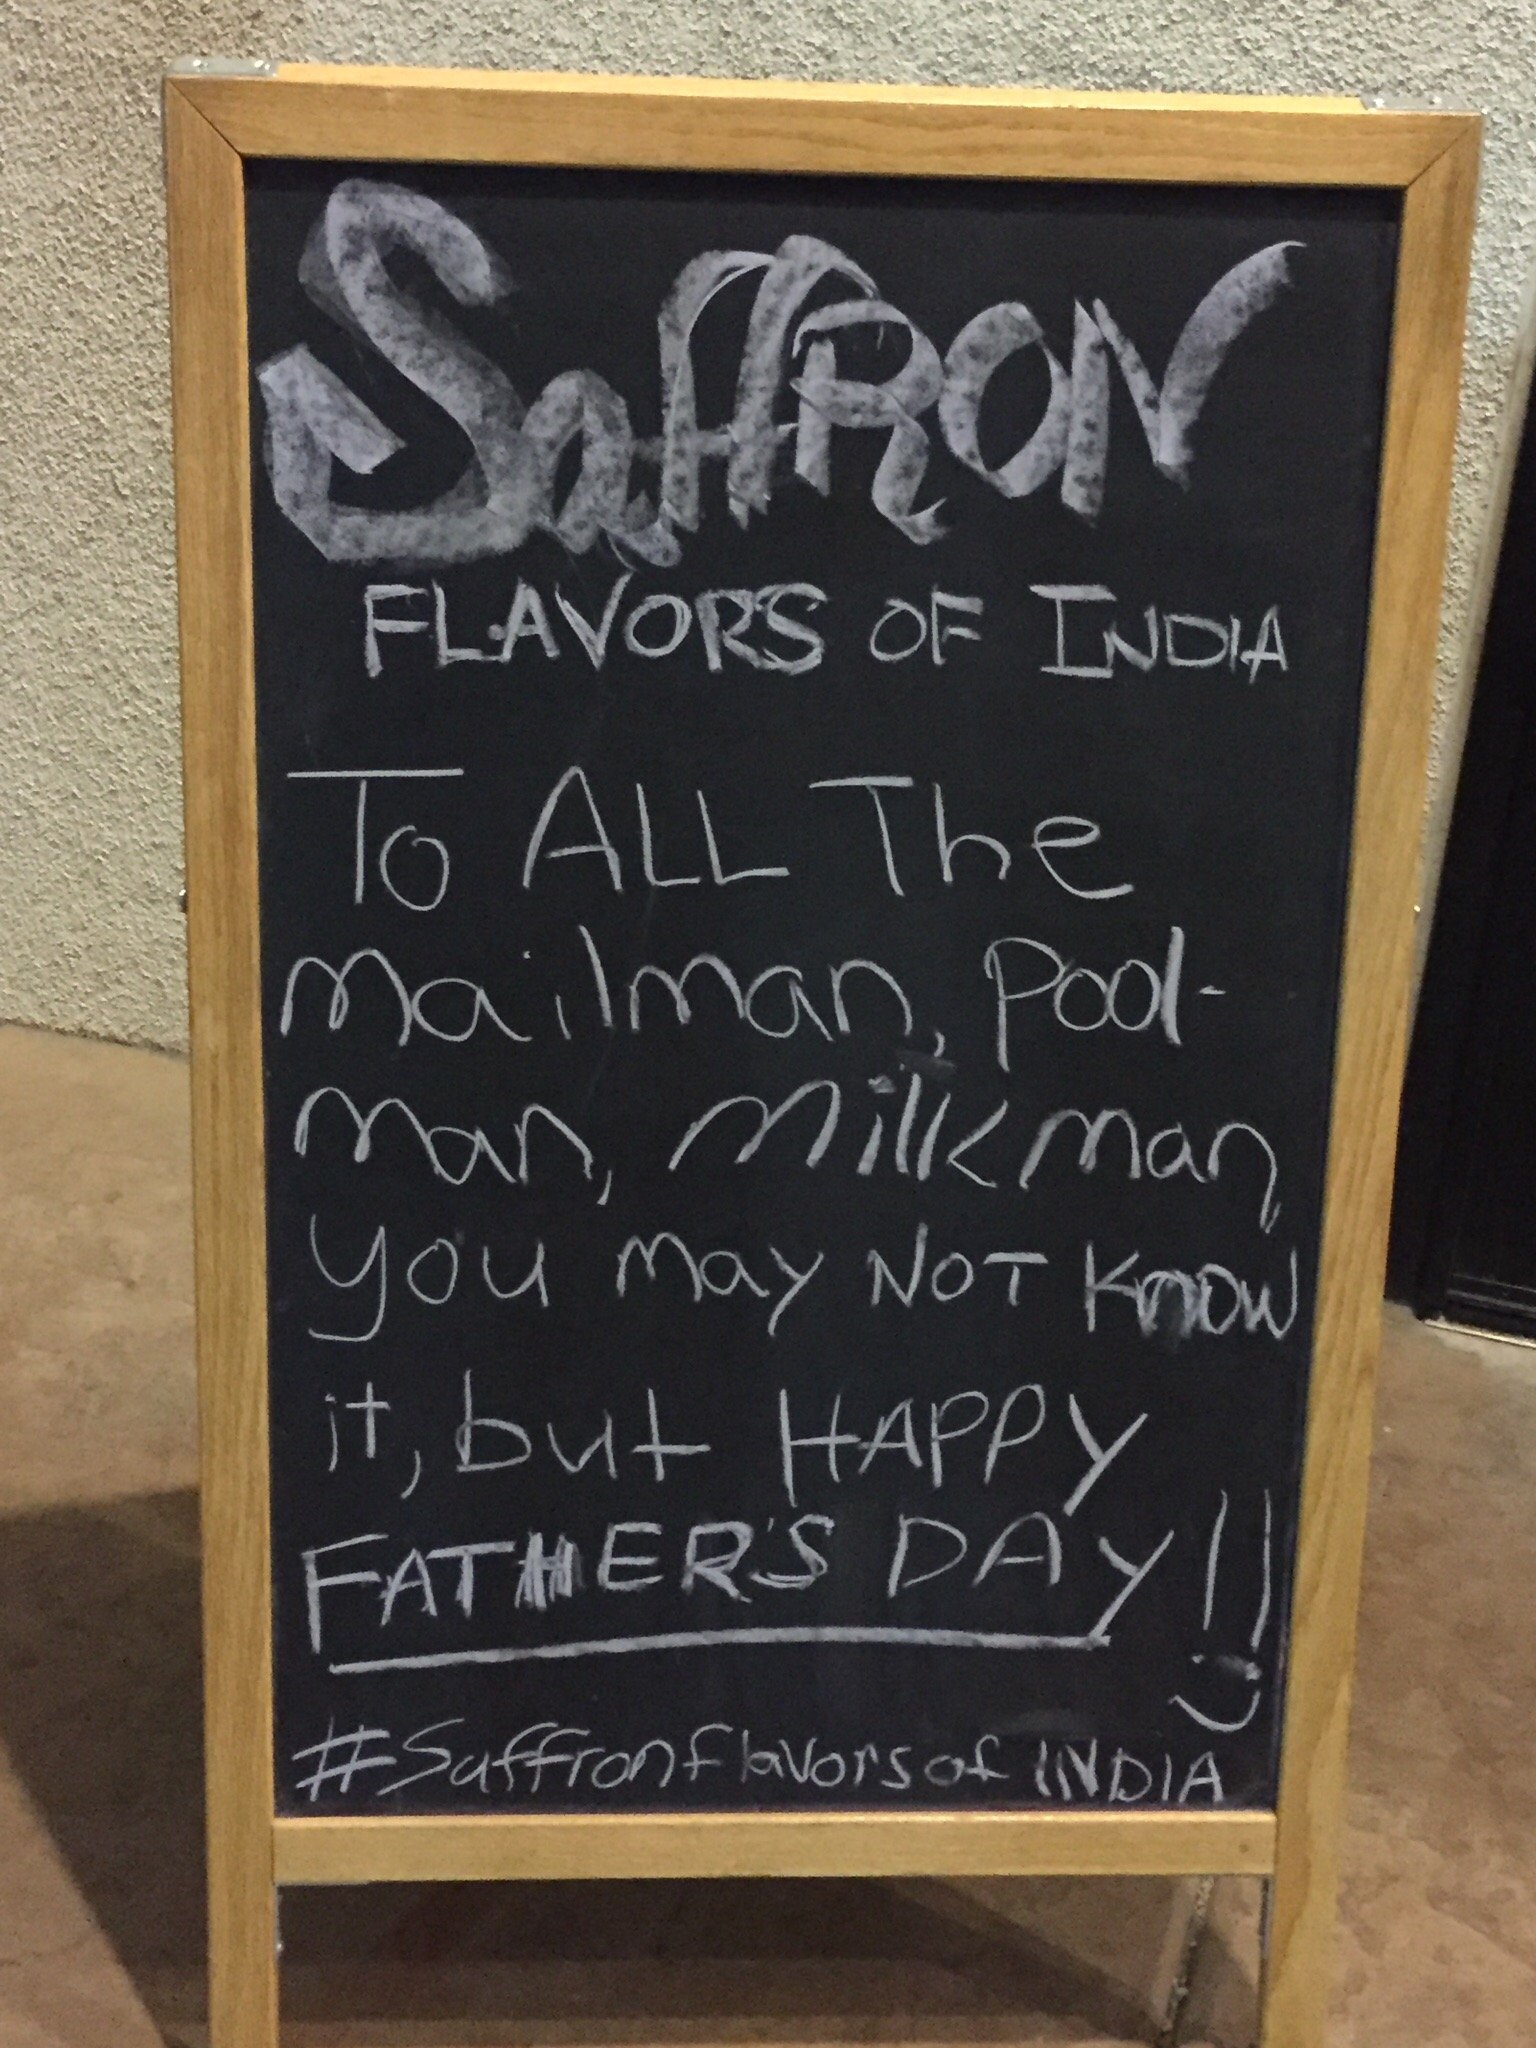 Saffron
FLAVORS OF INDIA
To ALL The
mailman, Pool-
man, milkman,
you may NOT Know
it, but HAPPY
FATHER'S DAY!!
#Saffronflavorsof INDIA